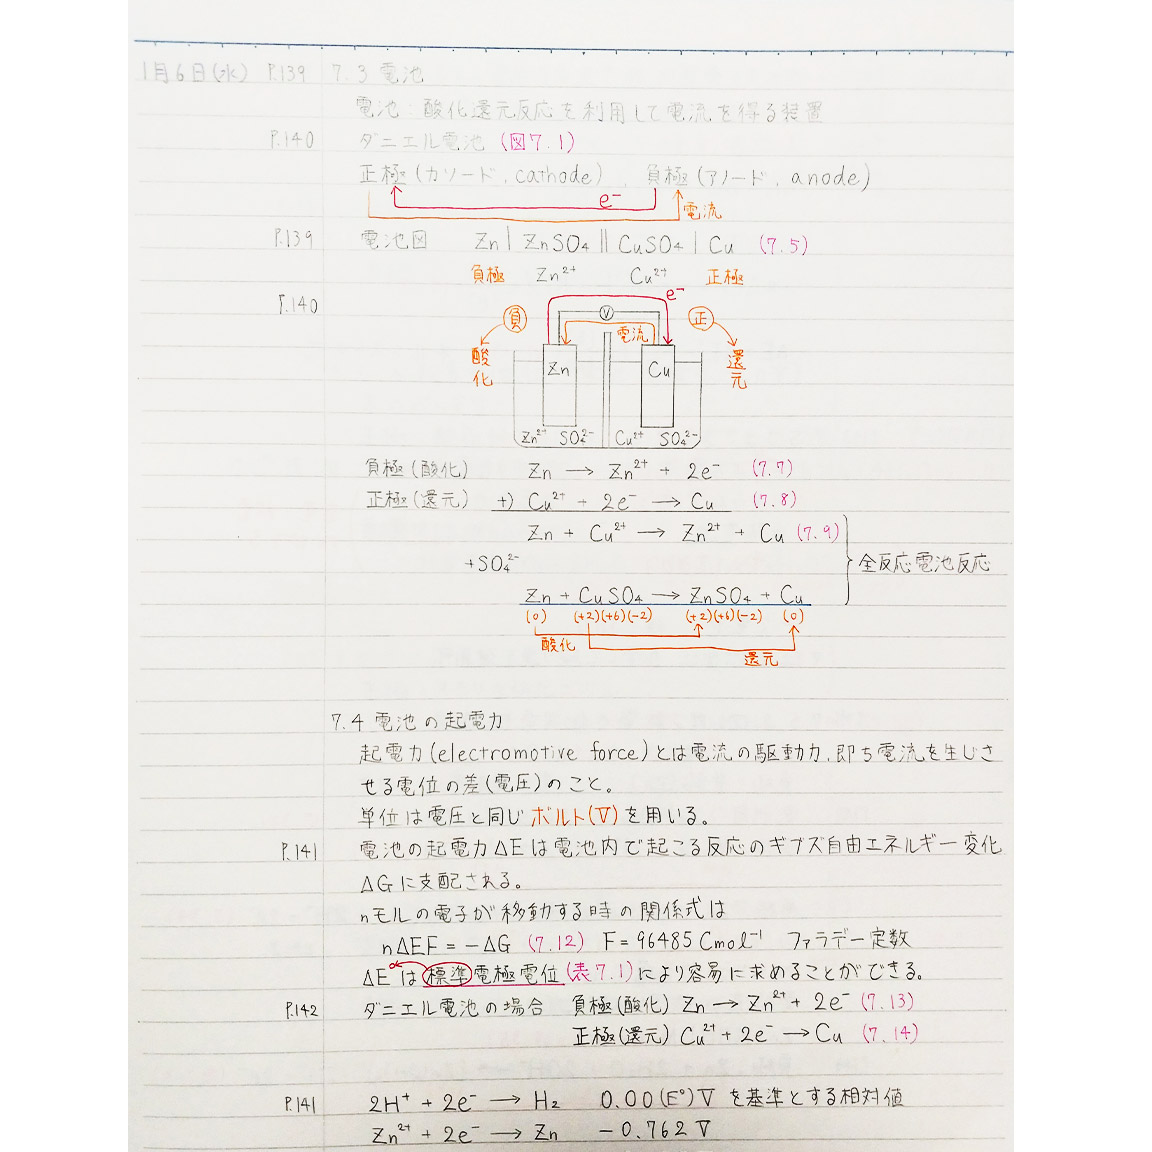 1月6日(水) P.139 7.3 電池
電池:酸化還元反応を利用して電流を得る装置
P.140 ダニエル電池 (図7.1)
正極(カソード, cathode), 負極(アノード, anode)
e⁻
電流
P.139 電池図 Zn | ZnSO₄ || CuSO₄ | Cu (7.5)
負極 Zn²⁺ Cu²⁺ 正極
P.140
e⁻
負 V 正
電流
酸化 還元
Zn Cu
Zn²⁺ SO₄²⁻ Cu²⁺ SO₄²⁻
負極(酸化) Zn → Zn²⁺ + 2e⁻ (7.7)
正極(還元) +) Cu²⁺ + 2e⁻ → Cu (7.8)
Zn + Cu²⁺ → Zn²⁺ + Cu (7.9)
+SO₄²⁻
全反応電池反応
Zn + CuSO₄ → ZnSO₄ + Cu
(0) (+2)(+6)(-2) (+2)(+6)(-2) (0)
酸化
還元
7.4 電池の起電力
起電力(electromotive force)とは電流の駆動力,即ち電流を生じさ
せる電位の差(電圧)のこと。
単位は電圧と同じボルト(V)を用いる。
P.141 電池の起電力ΔEは電池内で起こる反応のギブズ自由エネルギー変化
ΔGに支配される。
nモルの電子が移動する時の関係式は
nΔEF = -ΔG (7.12) F = 96485 Cmol⁻¹ ファラデー定数
ΔE°は標準電極電位(表7.1)により容易に求めることができる。
P.142 ダニエル電池の場合 負極(酸化) Zn → Zn²⁺ + 2e⁻ (7.13)
正極(還元) Cu²⁺ + 2e⁻ → Cu (7.14)
P.141 2H⁺ + 2e⁻ → H₂ 0.00(E°)V を基準とする相対値
Zn²⁺ + 2e⁻ → Zn -0.762V